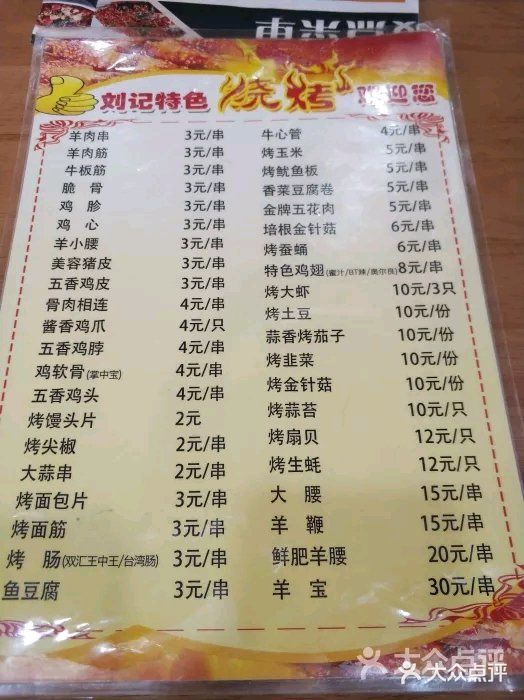 刘记特色 烧烤 欢迎您
羊肉串 3元/串
羊肉筋 3元/串
牛板筋 3元/串
脆骨 3元/串
鸡胗 3元/串
鸡心 3元/串
羊小腰 3元/串
美容猪皮 3元/串
五香鸡皮 3元/串
骨肉相连 4元/串
酱香鸡爪 4元/只
五香鸡脖 4元/串
鸡软骨(掌中宝) 4元/串
五香鸡头 4元/串
烤馒头片 2元
烤尖椒 2元/串
大蒜串 2元/串
烤面包片 3元/串
烤面筋 3元/串
烤肠(双汇王中王/台湾肠) 3元/串
鱼豆腐 3元/串
牛心管 4元/串
烤玉米 5元/串
烤鱿鱼板 5元/串
香菜豆腐卷 5元/串
金牌五花肉 5元/串
培根金针菇 6元/串
烤蚕蛹 6元/串
特色鸡翅(蜜汁/BT辣/奥尔良) 8元/串
烤大虾 10元/3只
烤土豆 10元/份
蒜香烤茄子 10元/份
烤韭菜 10元/份
烤金针菇 10元/份
烤蒜苔 10元/只
烤扇贝 12元/只
烤生蚝 12元/只
大腰 15元/串
羊鞭 15元/串
鲜肥羊腰 20元/串
羊宝 30元/串
大众点评
大众点评